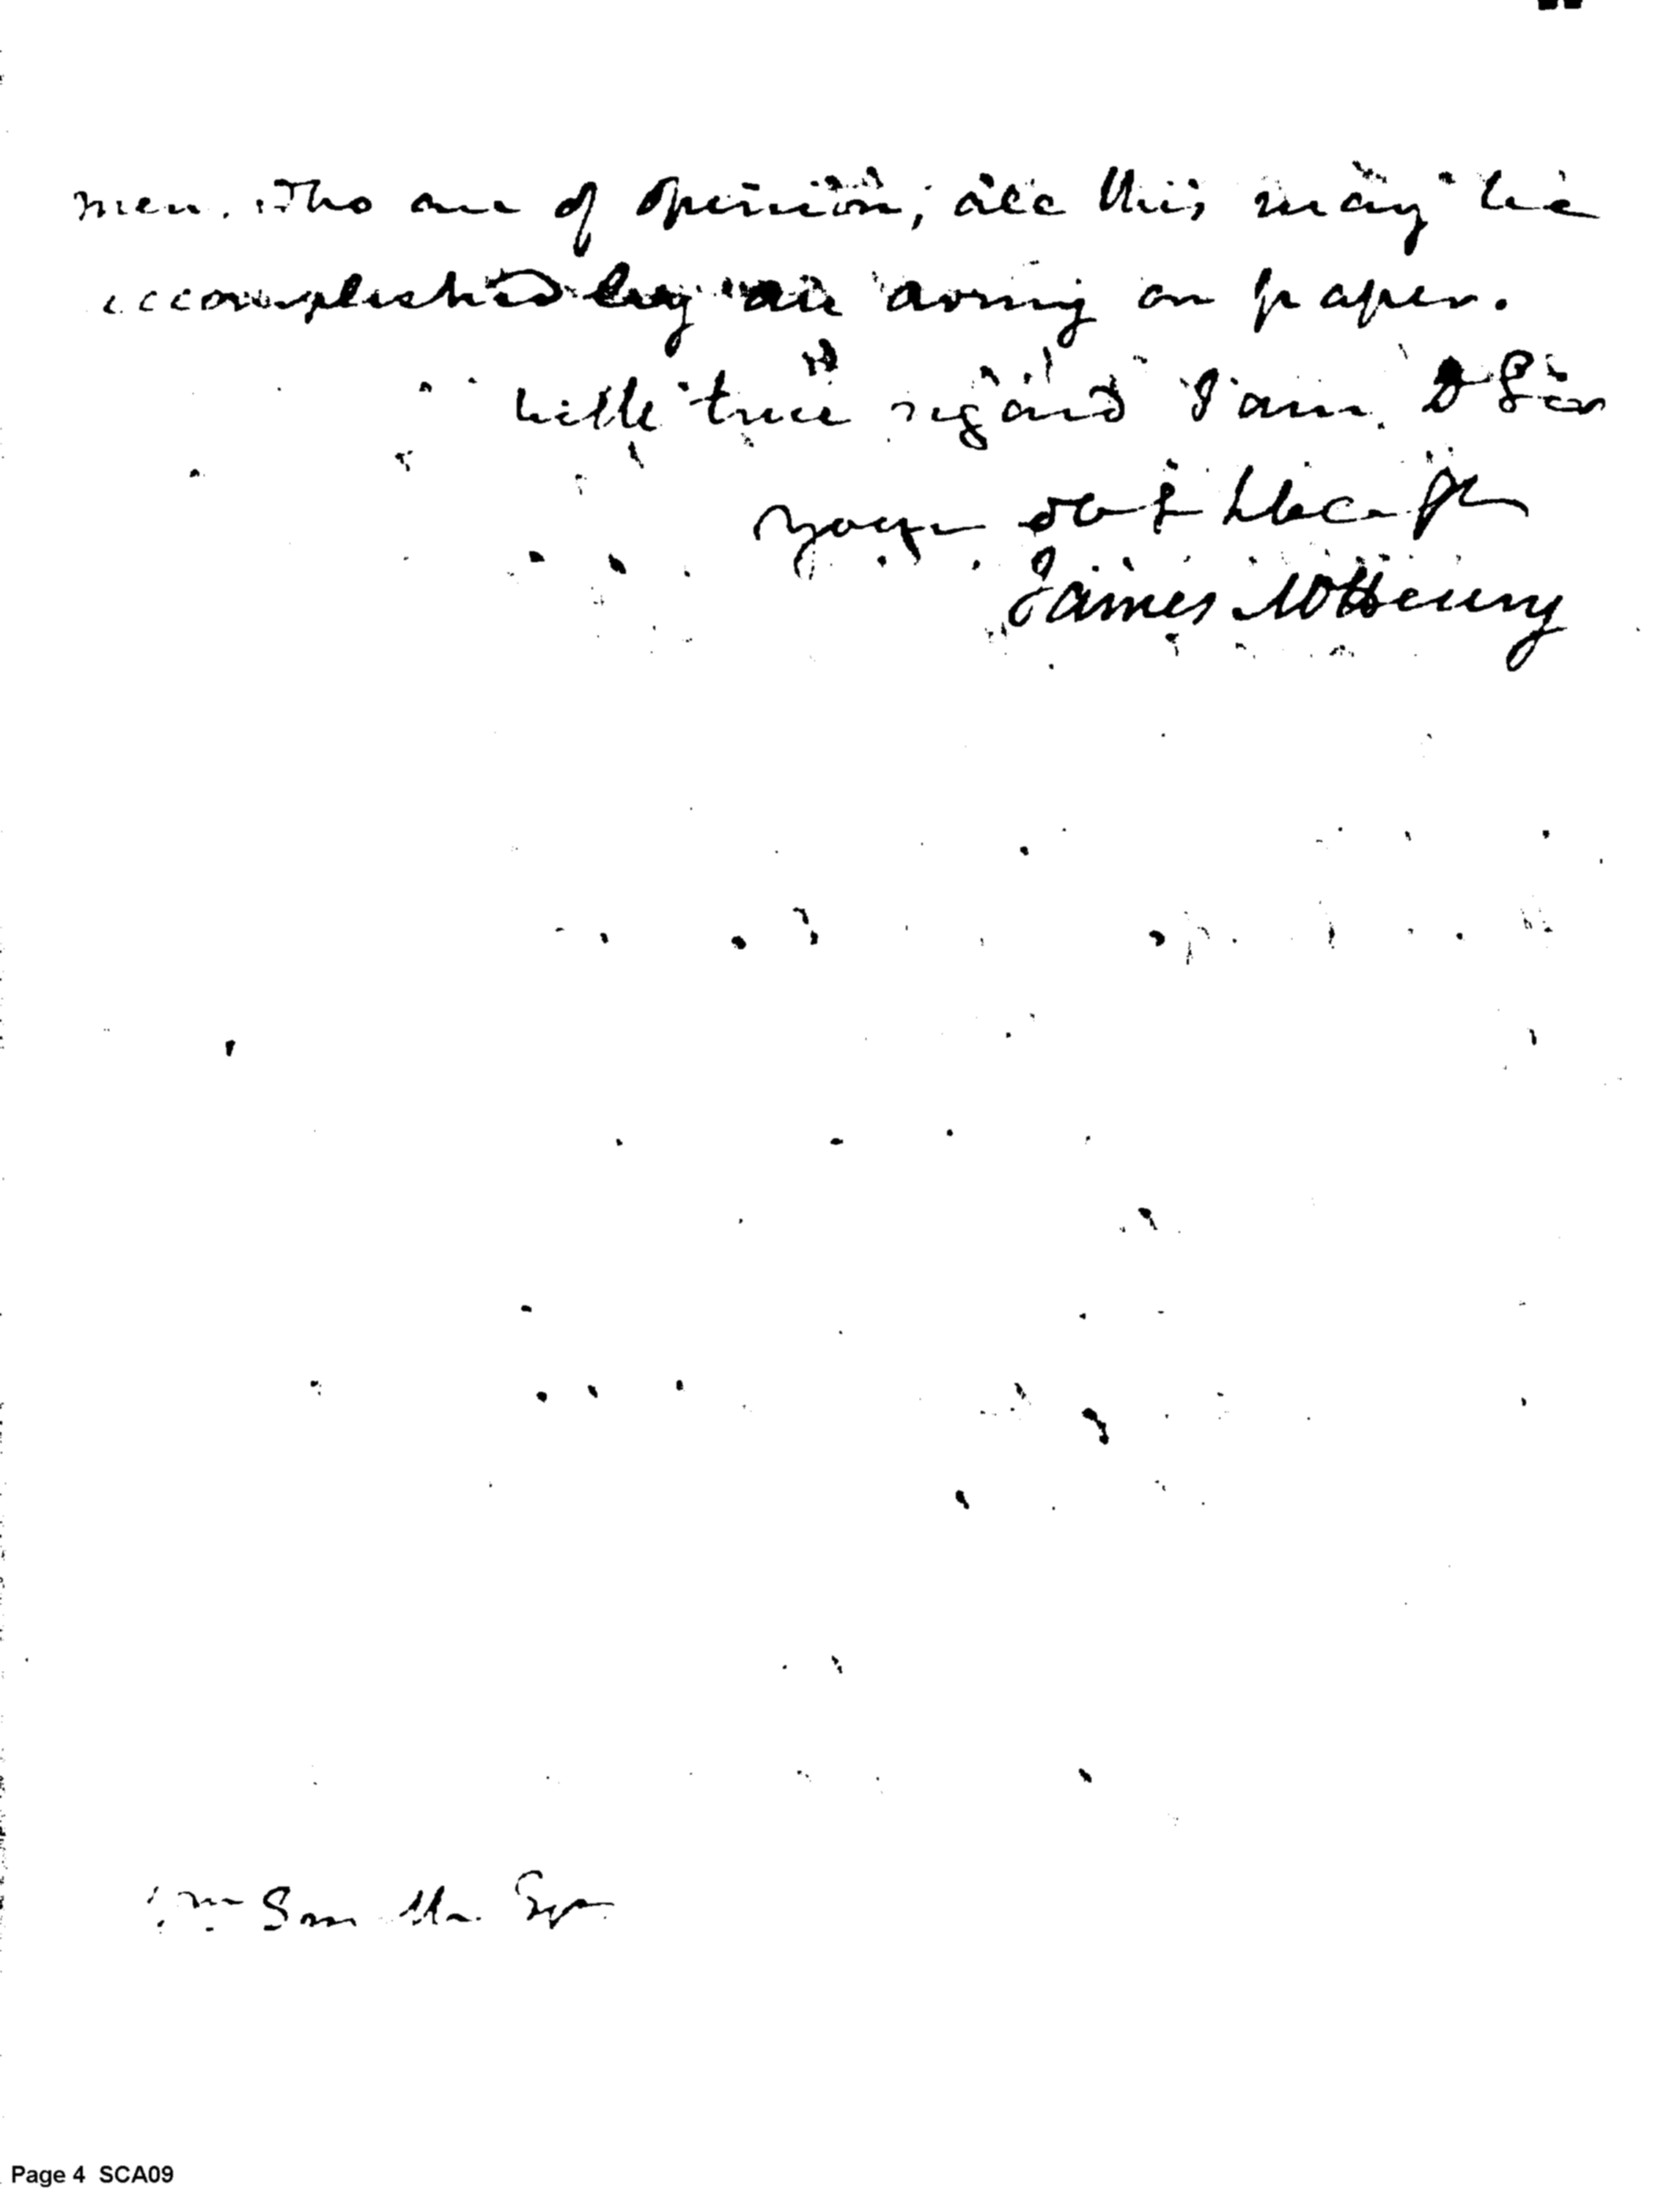 men. who are of opinion, all this may be
accomplished by an army on paper.
With true regard I am D Sir
Your obt
James McHenry
Wm Smith Esqr
Page 4 SCA09